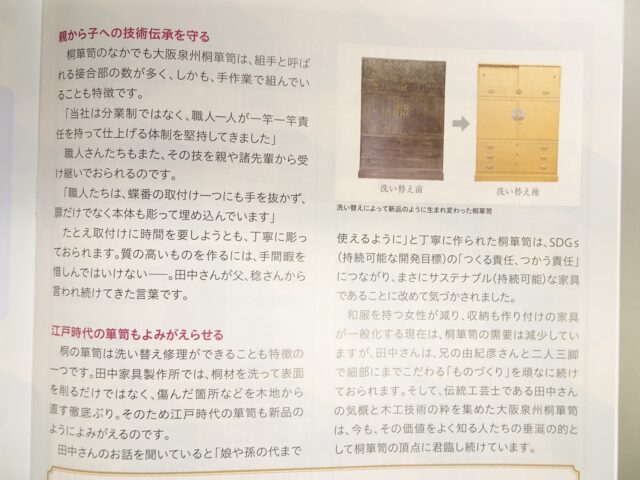 親から子への技術伝承を守る
　桐箪笥のなかでも大阪泉州桐箪笥は、組手と呼ば
れる接合部の数が多く、しかも、手作業で組んでい
ることも特徴です。
　「当社は分業制ではなく、職人一人が一竿一竿責
任を持って仕上げる体制を堅持してきました」
　職人さんたちもまた、その技を親や諸先輩から受
け継いでおられるのです。
　「職人たちは、蝶番の取付け一つにも手を抜かず、
扉だけでなく本体も彫って埋め込んでいます」
　たとえ取付けに時間を要しようとも、丁寧に彫っ
ておられます。質の高いものを作るには、手間暇を
惜しんではいけない――。田中さんが父、稔さんから
言われ続けてきた言葉です。
江戸時代の箪笥もよみがえらせる
　桐の箪笥は洗い替え修理ができることも特徴の
一つです。田中家具製作所では、桐材を洗って表面
を削るだけではなく、傷んだ箇所などを木地から
直す徹底ぶり。そのため江戸時代の箪笥も新品の
ようによみがえるのです。
　田中さんのお話を聞いていると「娘や孫の代まで
洗い替え前
洗い替え後
洗い替えによって新品のように生まれ変わった桐箪笥
使えるように」と丁寧に作られた桐箪笥は、SDGs
（持続可能な開発目標）の「つくる責任、つかう責任」
につながり、まさにサステナブル（持続可能）な家具
であることに改めて気づかされました。
　和服を持つ女性が減り、収納も作り付けの家具
が一般化する現在は、桐箪笥の需要は減少してい
ますが、田中さんは、兄の由紀彦さんと二人三脚
で細部にまでこだわる「ものづくり」を頑なに続け
ておられます。そして、伝統工芸士である田中さん
の気概と木工技術の粋を集めた大阪泉州桐箪笥
は、今も、その価値をよく知る人たちの垂涎の的と
して桐箪笥の頂点に君臨し続けています。